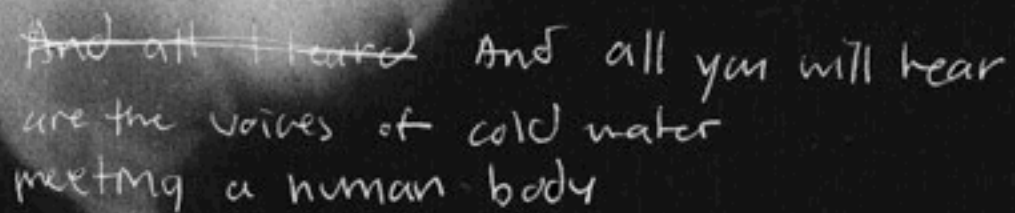 And all I heard And all you will hear
are the voices of cold water
meeting a human body